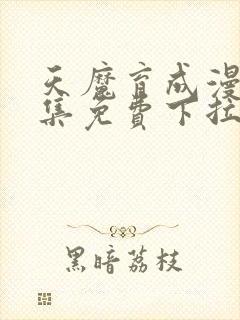 天魔育成漫
集免費下拉
黑暗荔枝